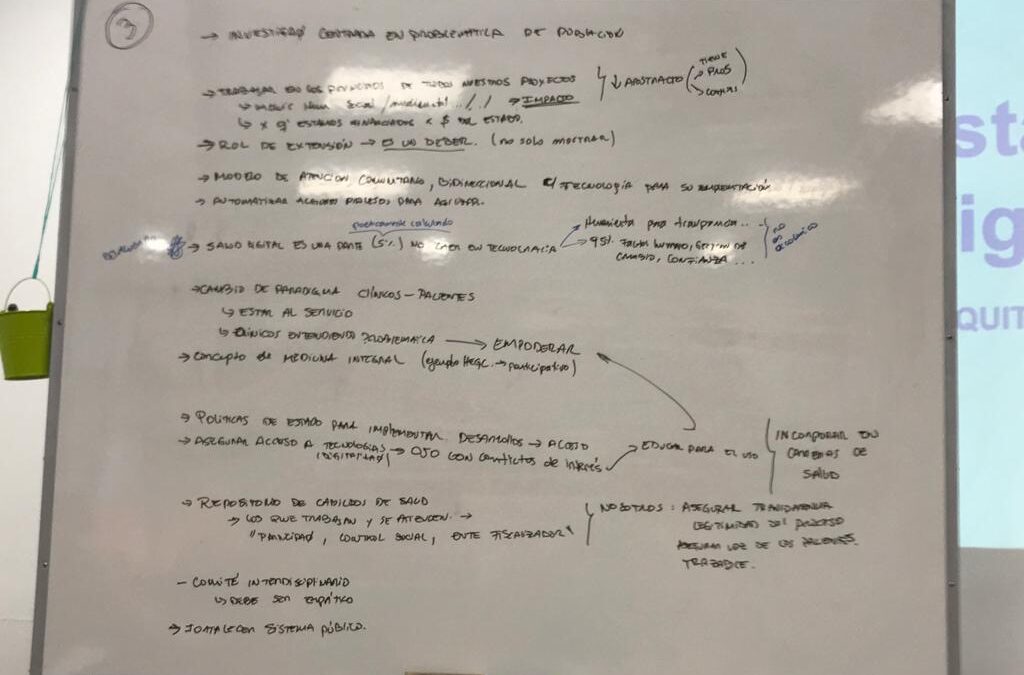 3
→ INVESTIGAR CENTRADA EN PROBLEMÁTICA DE POBLACIÓN
→ TRABAJAR EN LOS PRINCIPIOS DE TODOS NUESTROS PROYECTOS
↓ ABSTRACTO
TIENE
→ PROS
→ CONTRAS
→ IMPACTO
↳ x q' ESTAMOS FINANCIADOS x $ DEL ESTADO.
→ ROL DE EXTENSIÓN → ES UN DEBER. (no solo mostrar)
→ MODELO DE ATENCION COMUNITARIO, BIDIRECCIONAL C/ TECNOLOGÍA PARA SU IMPLEMENTACIÓN
→ AUTOMATIZAR ALGUNOS PROCESOS PARA AGILIZAR.
calculando
→ SALUD DIGITAL ES UNA PARTE (5%) NO CAER EN TECNOCRACIA
Herramienta para
→ 95% FACTOR HUMANO, GESTIÓN DEL
CAMBIO, CONFIANZA ...
no es
→ CAMBIO DE PARADIGMA CLÍNICOS - PACIENTES
↳ ESTAR AL SERVICIO
↳ CLÍNICOS ENTENDIENDO PROBLEMÁTICA → EMPODERAR
→ CONCEPTO DE MEDICINA INTEGRAL (ejemplo HEGC. → participativo)
→ POLÍTICAS DE ESTADO PARA IMPLEMENTAR DESARROLLOS → ACCESO
→ ASEGURAR ACCESO A TECNOLOGIAS → OJO CON conflictos de interés
(DIGITALES)
→ EDUCAR PARA EL USO
INCORPORAR EN
CARRERAS DE
SALUD
→ REPOSITORIO DE CABILDOS DE SALUD
→ LOS QUE TRABAJAN Y SE ATIENDEN. →
CONTROL SOCIAL, ENTE FISCALIZADOR"
NOSOTROS : ASEGURAR TRANSPARENCIA
LEGITIMIDAD DEL PROCESO
ASEGURAR VOZ DE LOS PACIENTES.
- COMITÉ INTERDISCIPLINARIO
↳ DEBE SER EMPÁTICO
→ FORTALECER SISTEMA PÚBLICO.
sta
ig
QUIT